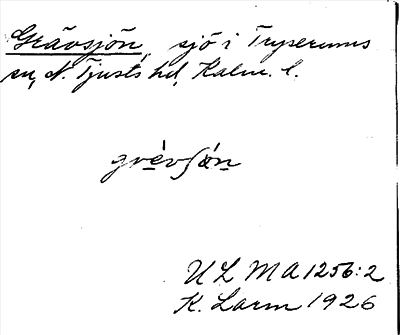 Grävsjön, sjö i Tryserums
sn, N. Tjusts hd, Kalm. l.
grèvʃón
ULMA 1256:2
K. Larm 1926